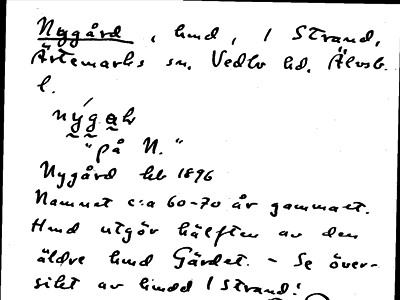 Nygård, hmd, i Strand,
Ärtemarks sn. Vedbo hd. Älvsb.
l.
nýgaʀ
"på N."
Nygård kb 1896
Namnet c:a 60-70 år gammalt.
Hmd utgör hälften av den
äldre hmd Gärdet. - Se över-
sikt av hmdd i Strand!